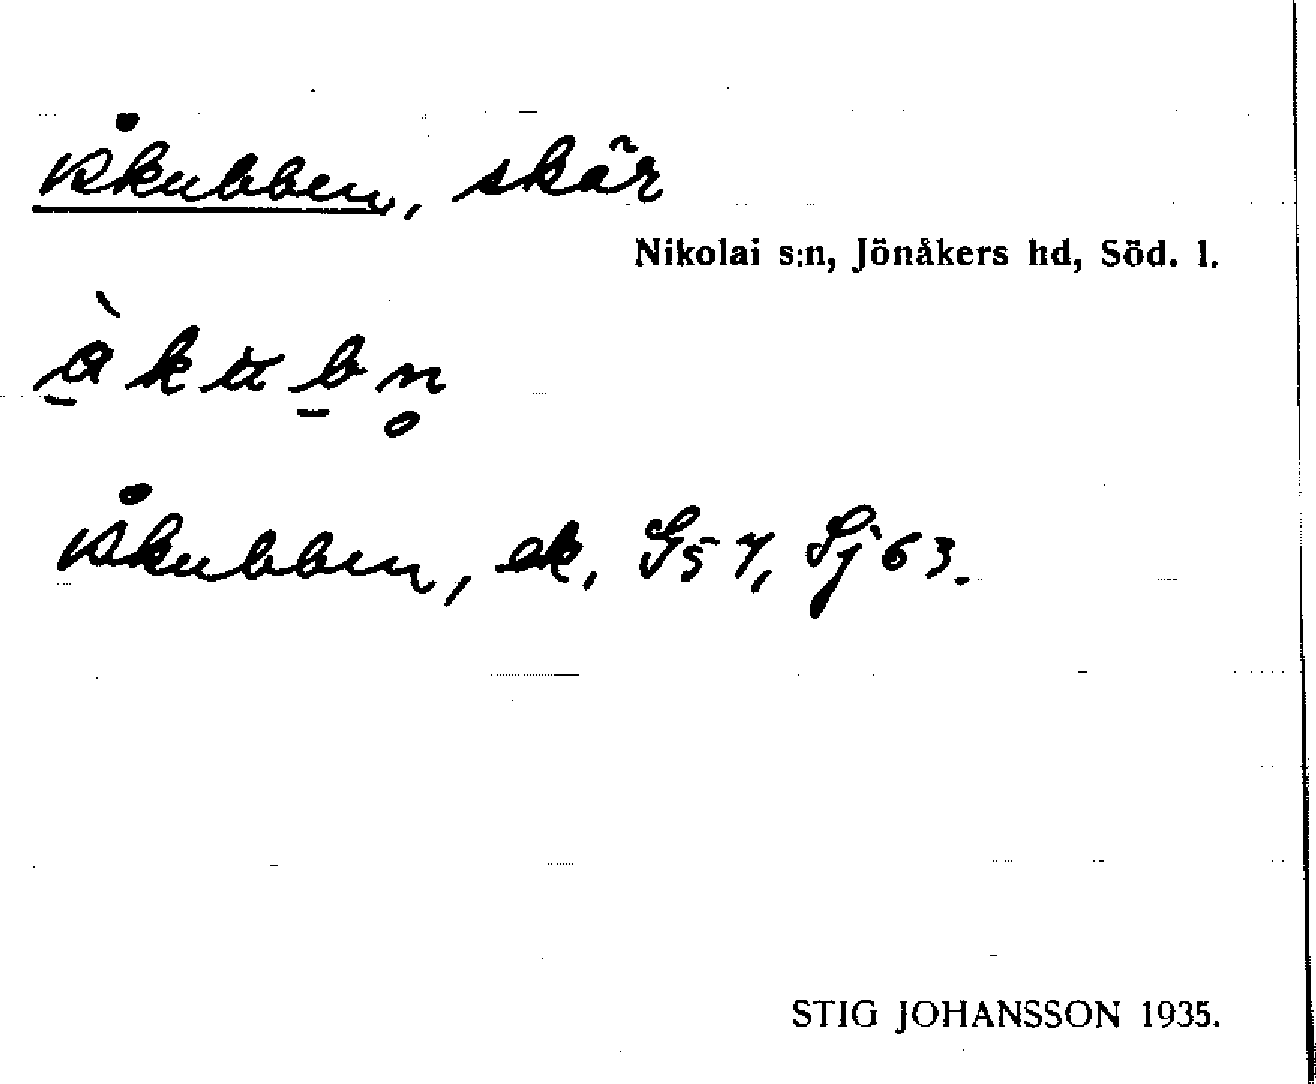 Åkubben, skär
Nikolai s:n, Jönåkers hd, Söd. l.
Åkubben, ek, G57, Sj 63.
STIG JOHANSSON 1935.